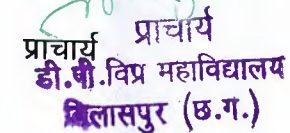 प्राचार्य प्राचार्य
डी.पी.विप्र महाविद्यालय
बिलासपुर (छ.ग.)